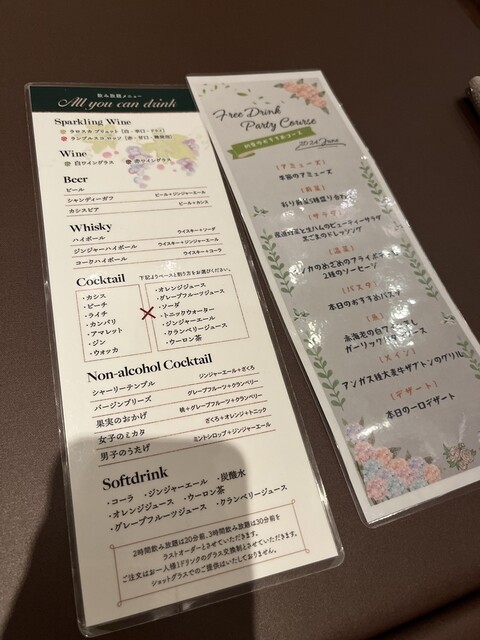 飲み放題メニュー
All you can drink
Sparkling Wine
Wine
白ワイングラス
赤ワイングラス
Beer
ビール
シャンディーガフ ビール+ジンジャーエール
カシスビア ビール+カシス
Whisky
ハイボール ウイスキー+ソーダ
ジンジャーハイボール ウイスキー+ジンジャーエール
コークハイボール ウイスキー+コーラ
Cocktail 下記よりベースと割り方をお選びください。
・カシス
・ピーチ
・ライチ
・カンパリ
・アマレット
・ジン
・ウォッカ
×
・オレンジジュース
・グレープフルーツジュース
・ソーダ
・トニックウォーター
・ジンジャーエール
・クランベリージュース
・ウーロン茶
Non-alcohol Cocktail
シャーリーテンプル ジンジャーエール+ざくろ
バージンブリーズ グレープフルーツ+クランベリー
果実のおかげ 桃+グレープフルーツ+クランベリー
女子のミカタ ざくろ+オレンジ+トニック
男子のうたげ ミントシロップ+ジンジャーエール
Softdrink
・コーラ ・ジンジャーエール ・炭酸水
・オレンジジュース ・ウーロン茶
・グレープフルーツジュース ・クランベリージュース
2時間飲み放題は20分前、3時間飲み放題は30分前を
ラストオーダーとさせていただきます。
ご注文はお一人様1ドリンクのグラス交換制とさせていただきます。
ショットグラスでのご提供はいたしておりません。
Free Drink
Party Course
2024 June
(アミューズ)
季節のアミューズ
(前菜)
(サラダ)
(温菜)
2種のソーセージ
(パスタ)
本日のおすすめパスタ
(魚)
(メイン)
アンガス牛
(デザート)
本日の一口デザート